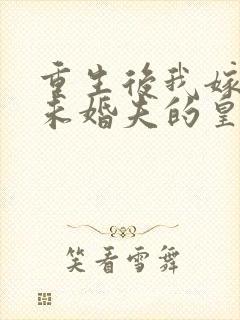 重生后我嫁
未婚夫的皇
笑看雪舞